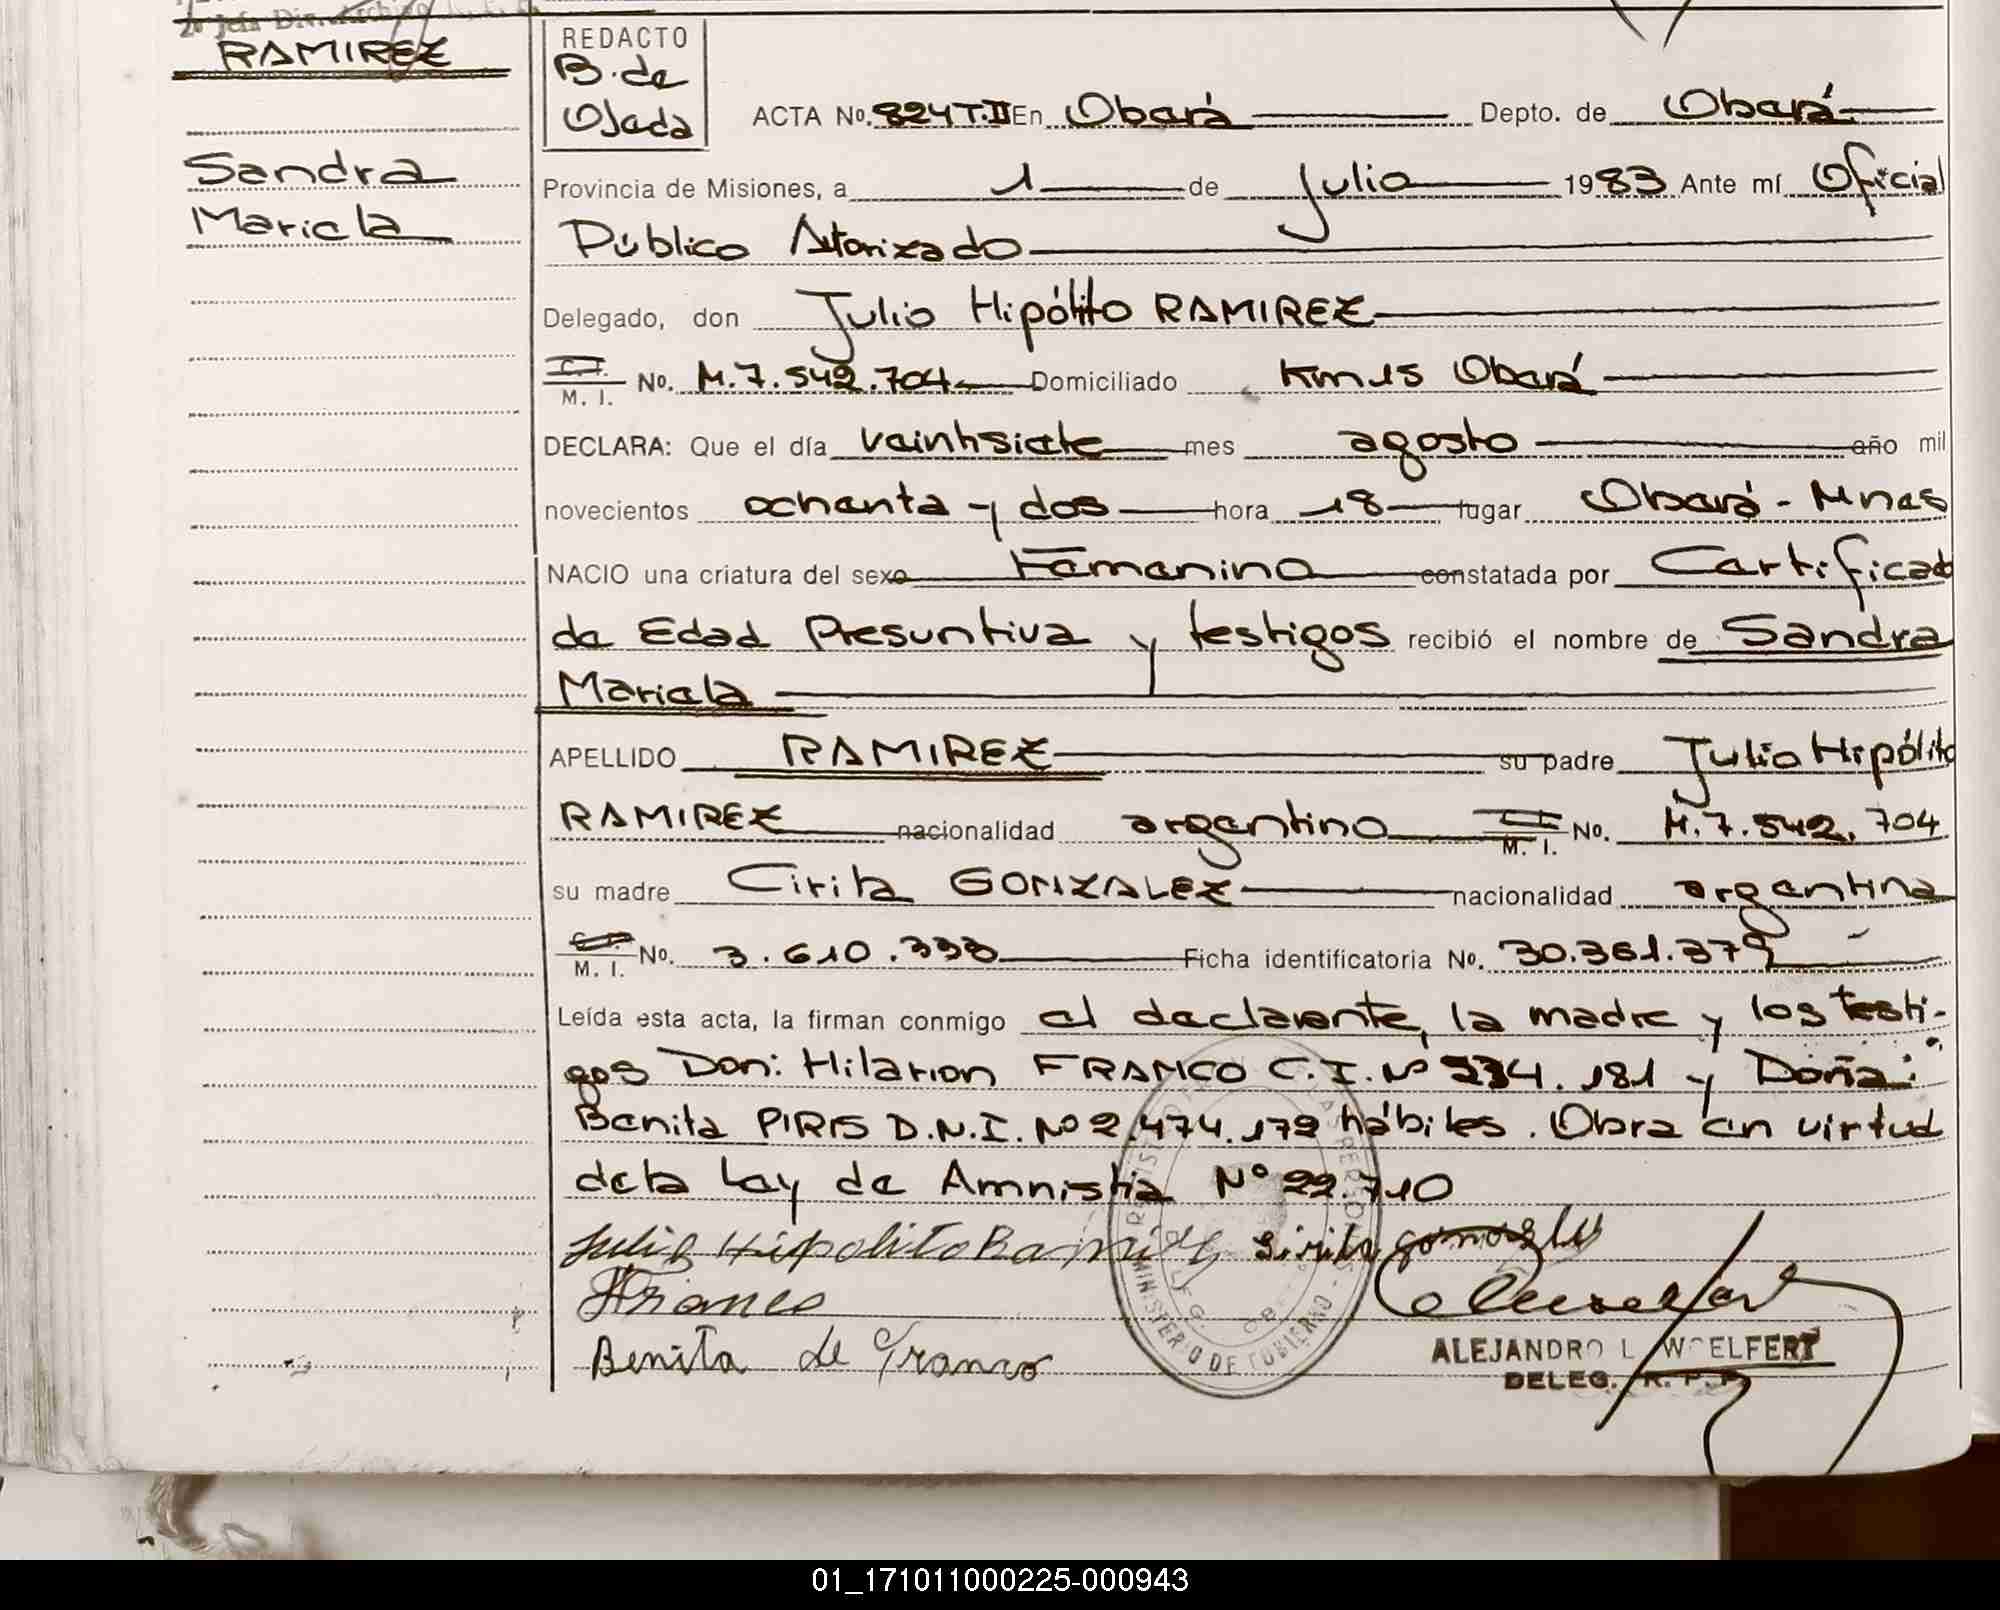 2º Jefa Div. Archivo
RAMIREZ
Sandra
Mariela
REDACTO
B. de
Ojeda
ACTA No. 824 T. II En Oberá Depto. de Oberá
Provincia de Misiones, a 1 de Julio 1983 Ante mí Oficial
Público Autorizado
Delegado, don Julio Hipólito RAMIREZ
C. I.
M. I. No. M. 7.542.704 Domiciliado Km 15 Oberá
DECLARA: Que el día veintisiete mes agosto año mil
novecientos ochenta y dos hora 18 lugar Oberá - Mnes
NACIO una criatura del sexo Femenino constatada por Certificado
de Edad Presuntiva y testigos recibió el nombre de Sandra
Mariela
APELLIDO RAMIREZ su padre Julio Hipólito
RAMIREZ nacionalidad argentino C. I.
M. I. No. M. 7.542.704
su madre Cirila GONZALEZ nacionalidad argentina
C. I.
M. I. No. 3.610.333 Ficha identificatoria No. 30.361.379
Leída esta acta, la firman conmigo el declarante, la madre y los testi-
gos Don: Hilarion FRANCO C.I. Nº 234.181 y Doña:
Benita PIRIS D.N.I. Nº 2.474.172 hábiles. Obra en virtud
de la Ley de Amnistia Nº 22.710
Julio Hipolito Ramirez Sirila gonzales
HFranco
Benita de Franco
MINISTERIO DE GOBIERNO
ALEJANDRO L. WOELFERT
DELEG. R. P.
01_171011000225-000943